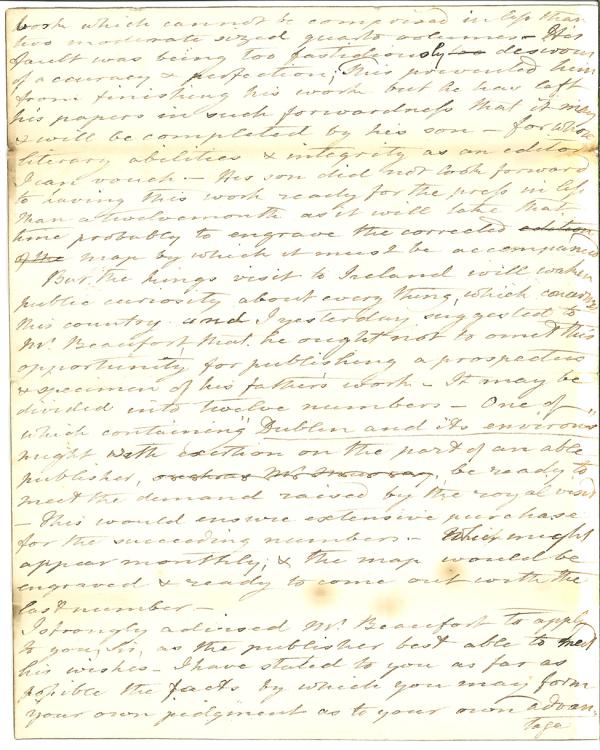 work which cannot be comprised in less than
two moderate sized quarto volumes – His
fault was being too fastidiously too desirous
of accuracy & perfection; This prevented him
from finishing his work but he has left
his papers in such forwardness that it may
& will be completed by his son – for whose
literary abilities & integrity as an editor
I can vouch – His son did not look forward
to having this work ready for the press in less
than a twelvemonth as it will take that
time probably to engrave the corrected edition
of the map by which it must be accompanied
But the kings visit to Ireland will waken
public curiosity about every thing, which concerns
this country and I yesterday suggested to
Mr. Beaufort that he ought not to omit this
opportunity for publishing a prospectus
& specimen of his father's work – It may be
divided into twelve numbers – One of
which containing "Dublin and its environs"
might with exertion on the part of an able
publisher, such as Mr. Murray, be ready to
meet the demand raised by the royal visit
– This would ensure extensive purchase
for the succeeding numbers – Which might
appear monthly; & the map would be
engraved & ready to come out with the
last number –
I strongly advised Mr. Beaufort to apply
to you, Sir, as the publisher best able to meet
his wishes – I have stated to you as far as
possible the facts by which you may form
your own judgment as to your own advan-
tage